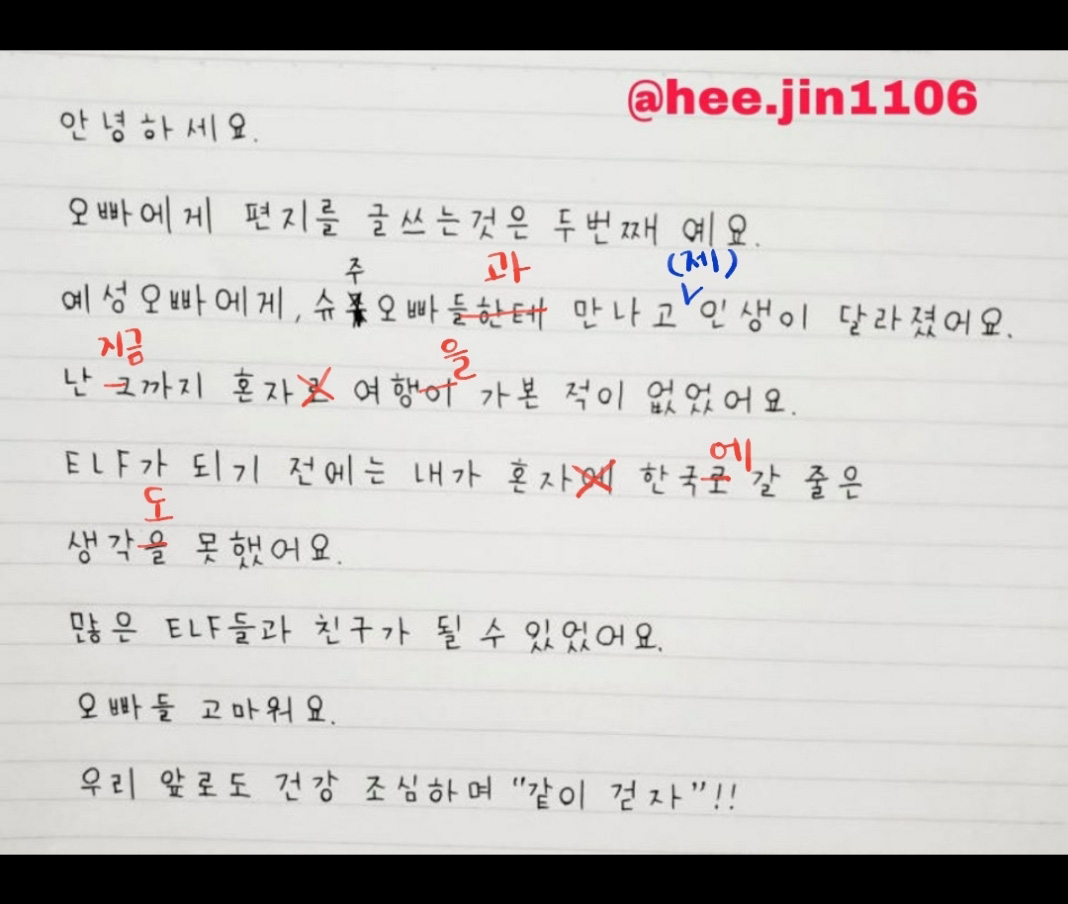 @hee.jin1106
안녕하세요.
오빠에게 편지를 글쓰는것은 두번째 예요.
주 과 (제)
예성오빠에게, 슈 오빠들한테 만나고 인생이 달라졌어요.
지금 을
난 그까지 혼자로 여행이 가본 적이 없었어요.
에
ELF가 되기 전에는 내가 혼자에 한국로 갈 줄은
도
생각을 못했어요.
많은 ELF들과 친구가 될 수 있었어요.
오빠들 고마워요.
우리 앞로도 건강 조심하며 "같이 걷자"!!